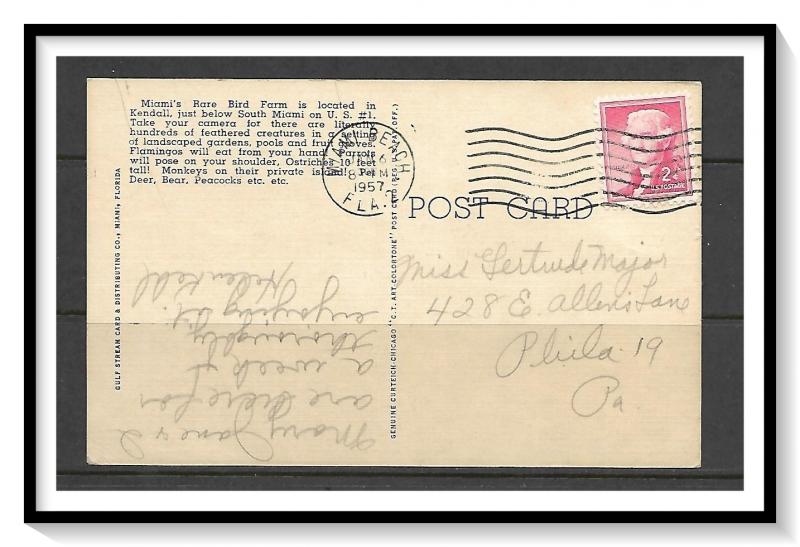 Miami's Rare Bird Farm is located in
Kendall, just below South Miami on U. S. #1.
Take your camera for there are literally
hundreds of feathered creatures in a setting
of landscaped gardens, pools and fruit groves.
Flamingos will eat from your hand, Parrots
will pose on your shoulder, Ostriches 10 feet
tall! Monkeys on their private island! Pet
Deer, Bear, Peacocks etc. etc.
GULF STREAM CARD & DISTRIBUTING CO., MIAMI, FLORIDA
GENUINE CURTEICH-CHICAGO "C. T. ART-COLORTONE" POST CARD (REG. U. S. PAT. OFF.)
MIAMI BEACH
1957
FLA.
2¢
POSTAGE
POST CARD
Miss Gertrude Major
428 E. Allens Lane
Phila 19
Pa
Mary Jane & I
are here for
a week &
enjoying it.
Helen